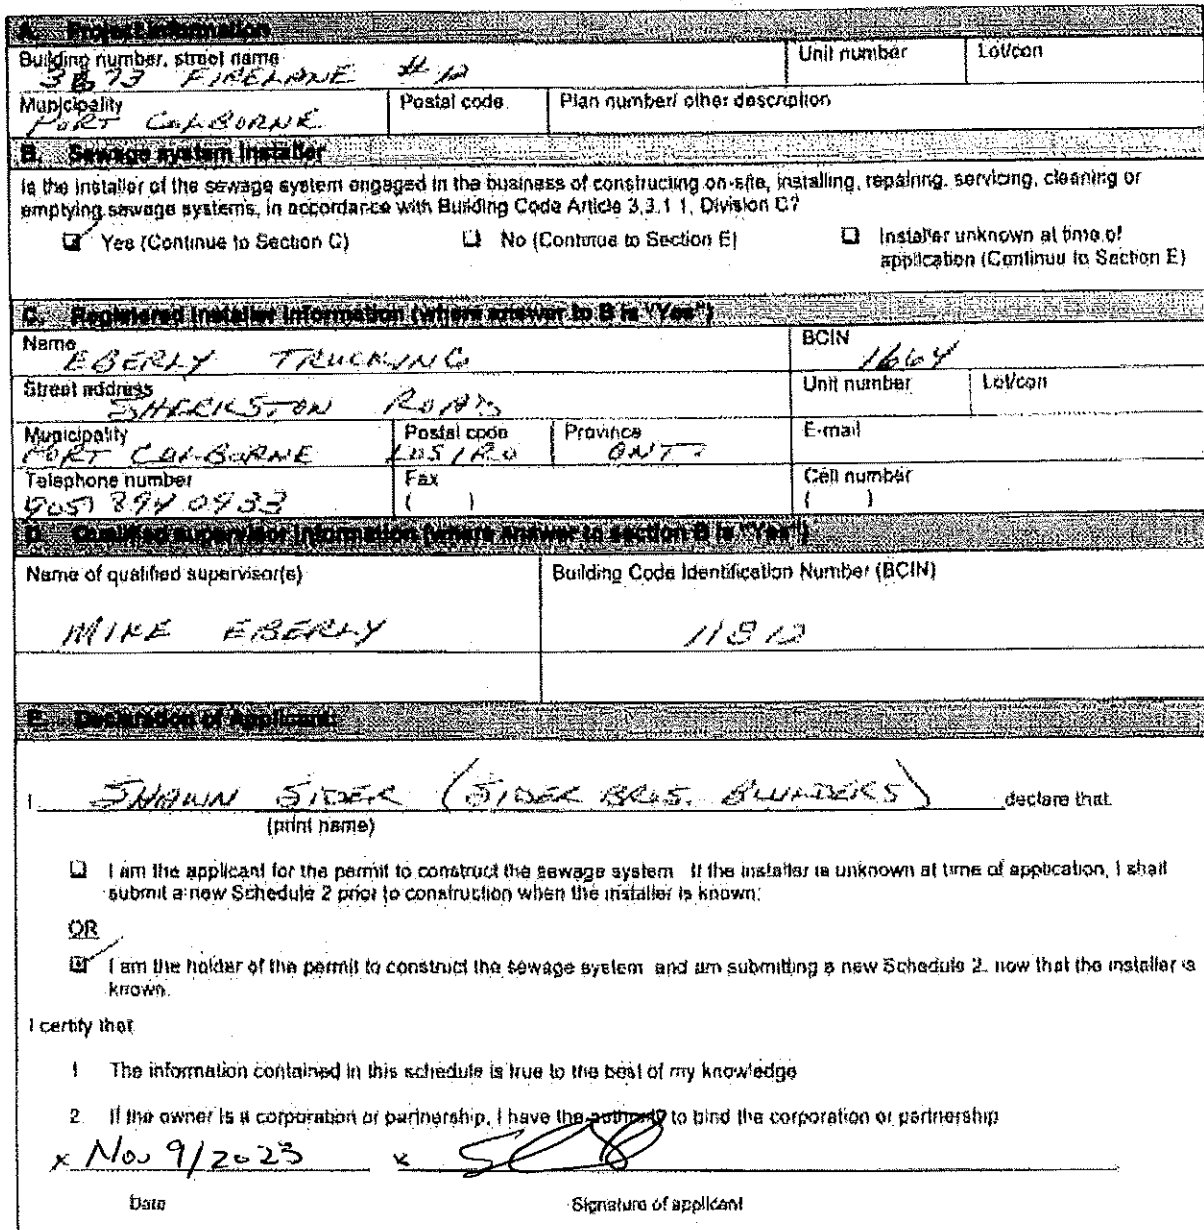 A. Project Information
Building number, street name
Unit number
Lot/con
3873 FIRELANE #12
Municipality
Postal code
Plan number/ other description
PORT COLBORNE
B. Sewage system Installer
Is the installer of the sewage system engaged in the business of constructing on-site, installing, repairing, servicing, cleaning or
emptying sewage systems, in accordance with Building Code Article 3.3.1.1, Division C?
Yes (Continue to Section C)
No (Continue to Section E)
Installer unknown at time of
application (Continue to Section E)
C. Registered Installer Information (where answer to B is "Yes")
Name
BCIN
EBERLY TRUCKING
1664
Street address
Unit number
Lot/con
SHERKSTON ROAD
Municipality
Postal code
Province
E-mail
PORT COLBORNE
L0S 1R0
ONT
Telephone number
Fax
Cell number
905) 894 0933
( )
( )
D. Qualified supervisor information (where answer to section B is "Yes")
Name of qualified supervisor(s)
Building Code Identification Number (BCIN)
MIKE EBERLY
11812
E. Declaration of Applicant:
I SHAWN SIDER (SIDER BROS. BUILDERS) declare that:
(print name)
I am the applicant for the permit to construct the sewage system. If the installer is unknown at time of application, I shall
submit a new Schedule 2 prior to construction when the installer is known;
OR
I am the holder of the permit to construct the sewage system and am submitting a new Schedule 2, now that the installer is
known.
I certify that
1 The information contained in this schedule is true to the best of my knowledge
2. If the owner is a corporation or partnership, I have the authority to bind the corporation or partnership
x Nov 9/2023 x
Date
Signature of applicant